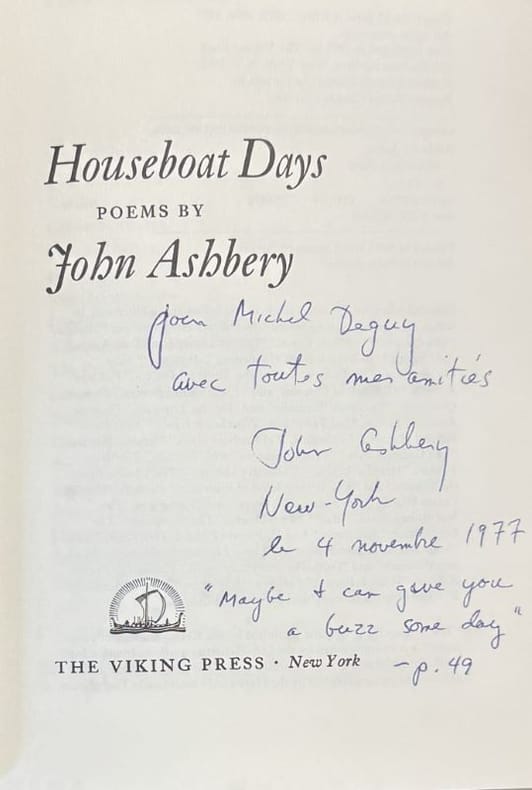 Houseboat Days
POEMS BY
John Ashbery
pour Michel Deguy
avec toutes mes amitiés
John Ashbery
New-York
le 4 novembre 1977
"Maybe I can give you
a buzz some day"
THE VIKING PRESS · New York
— p. 49